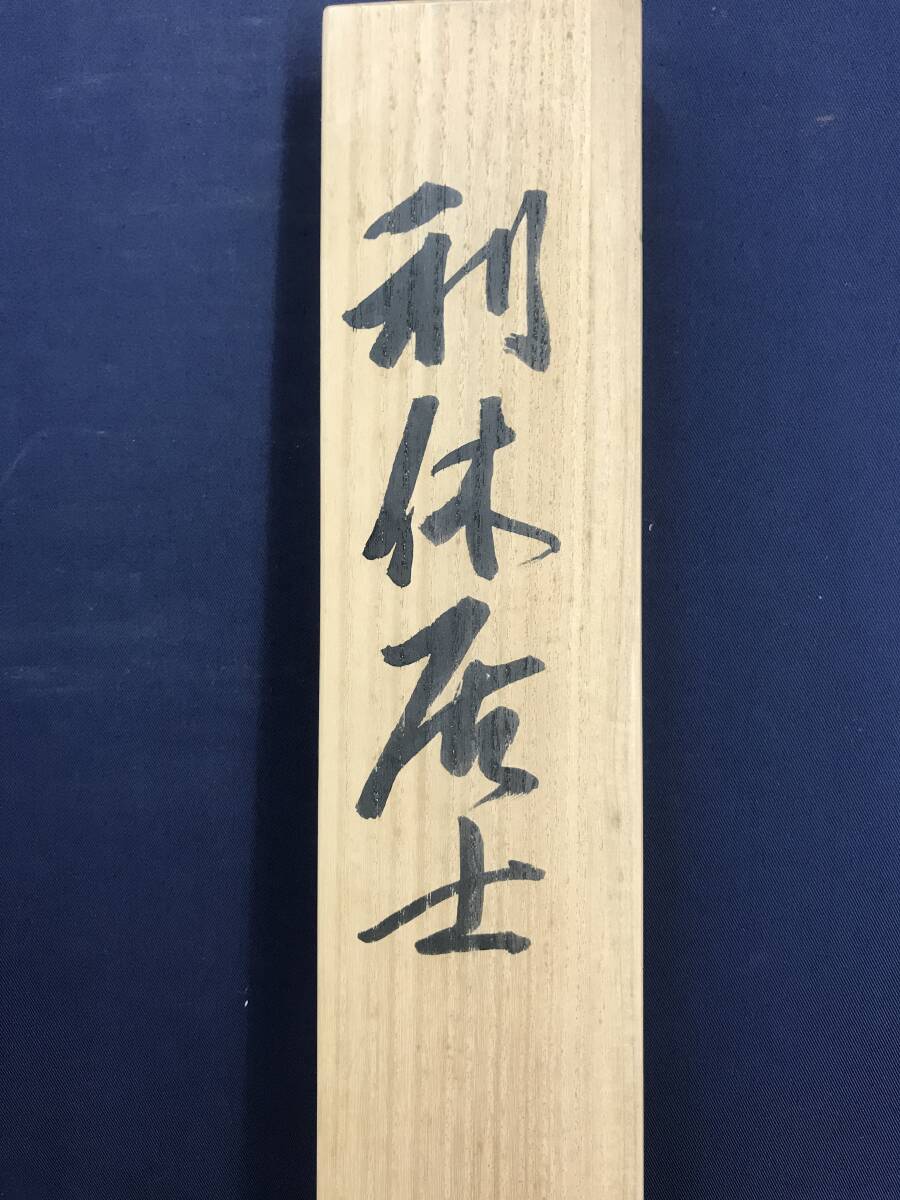 利休居士